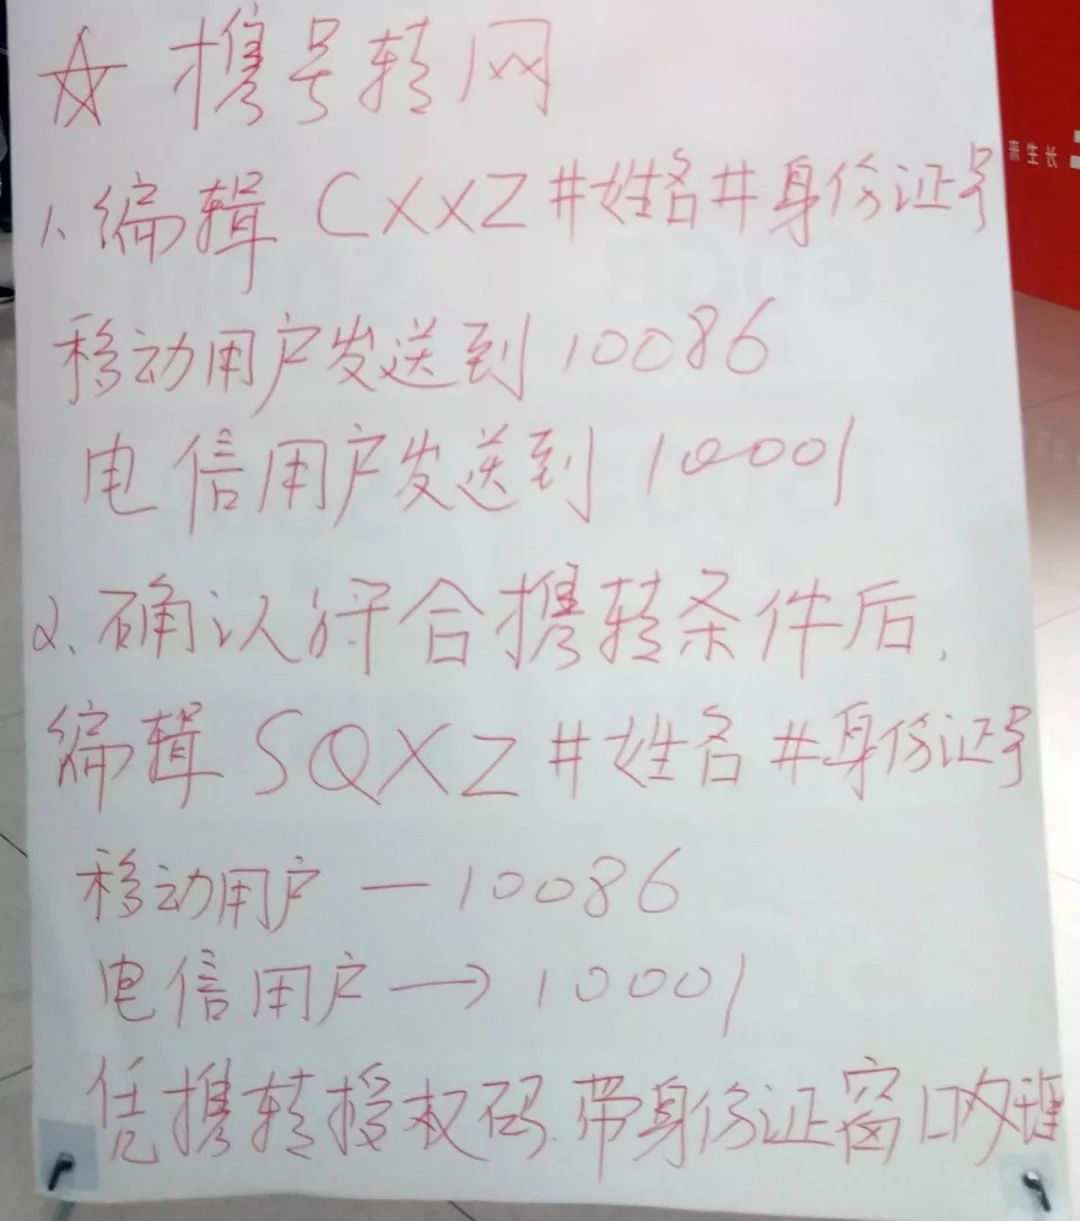 ☆ 携号转网
1、编辑 CXXZ#姓名#身份证号
移动用户发送到 10086
电信用户发送到 10001
2、确认符合携转条件后,
编辑 SQXZ#姓名#身份证号
移动用户 — 10086
电信用户 → 10001
凭携转授权码.带身份证窗口办理
来生长